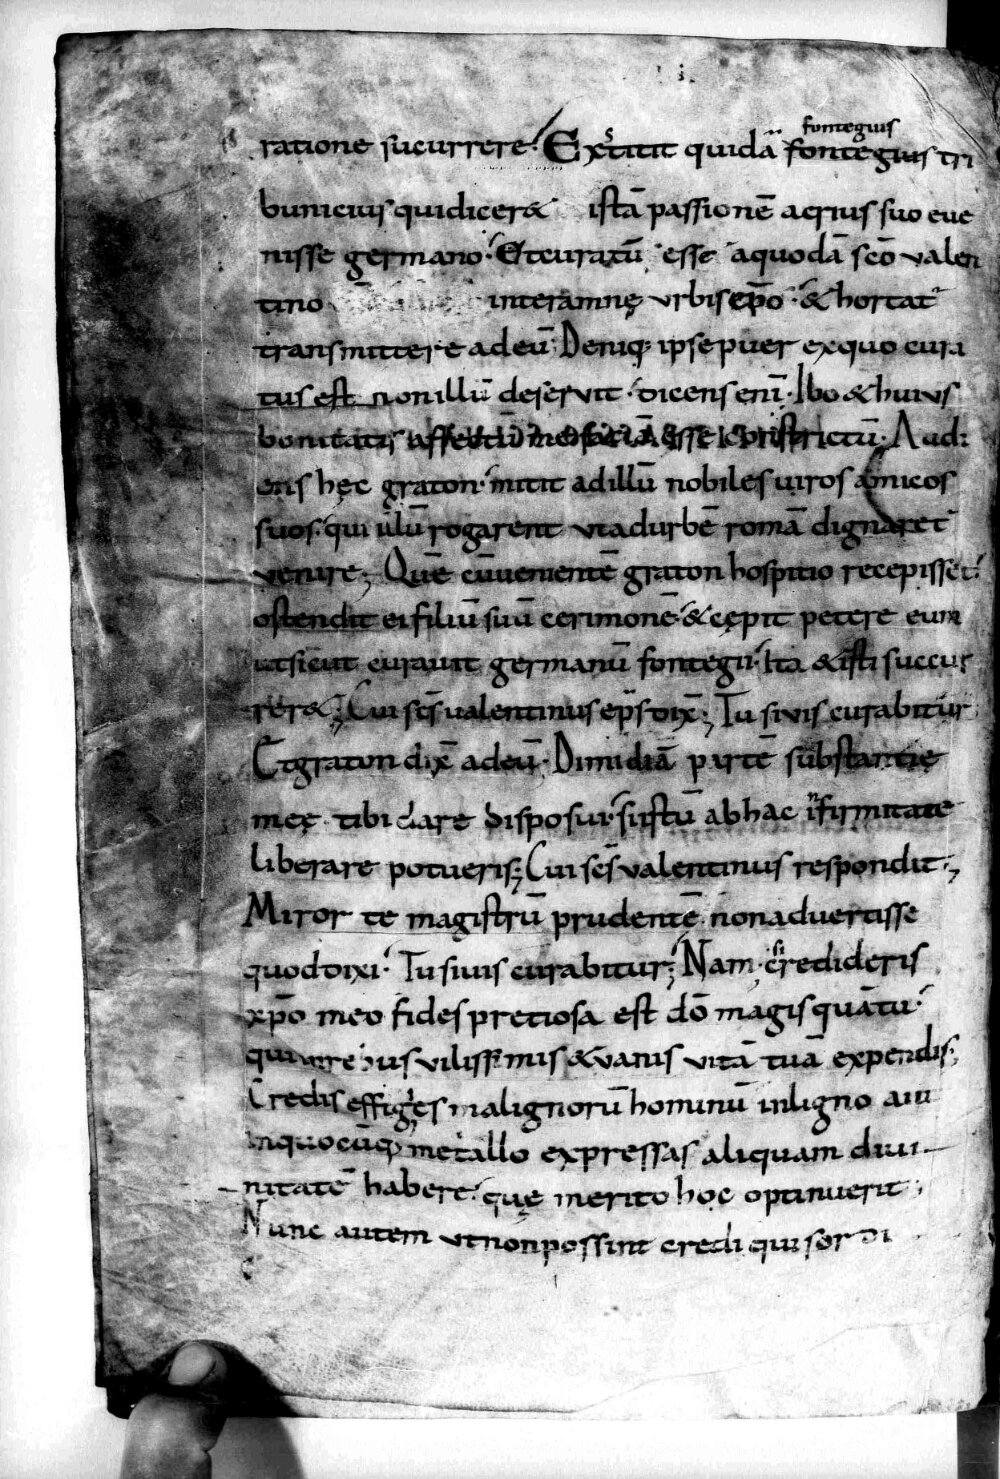 fonteguis
ratione sucurrere. Exstitit quidā fonteguis tri
bunicius qui dicer& istā passionē acrius suo eue
nisse germano. Et curatū esse a quodā sc̄o valen
tino interamnę urbis ep̄o. & hortat̄
transmittere ad eū. Deniq; ipse puer ex quo cura
tus est non illū deseruit. dicens enī. Ibo & huius
bonitatis affectū
ens hęc graton. mitit ad illū nobiles uiros amicos
suos. qui illū rogarent ut ad urbē romā dignaret̄
uenire; Quē cū uenientē graton hospitio recepisset.
ostendit ei filiū suū cerimonē. & cępit petere eum
ut sicut curauit germanū fontegii. Ita & isti succur
rer&; Cui sc̄s ualentinus ep̄s dix̄; Tu si uis curabitur
Et graton dix̄ ad eū. Dimidiā partē substantię
meę tibi dare disposui. si istū ab hac infirmitate
liberare potueris; Cui sc̄s ualentinus respondit;
Miror te magistrū prudentē non aduertisse
quod dixi. Tu si uis curabitur; Nam si credideris
xp̄o meo fides pretiosa est dō magis quātū.
qui in rebus uilissimis & uanis uitā tuā expendis;
Credis effigies malignorū hominū in ligno aut
in quocūq; metallo expressas aliquam diui
nitatē habere. quę merito hoc optinuerit;
Nunc autem ut non possint credi qui sordi